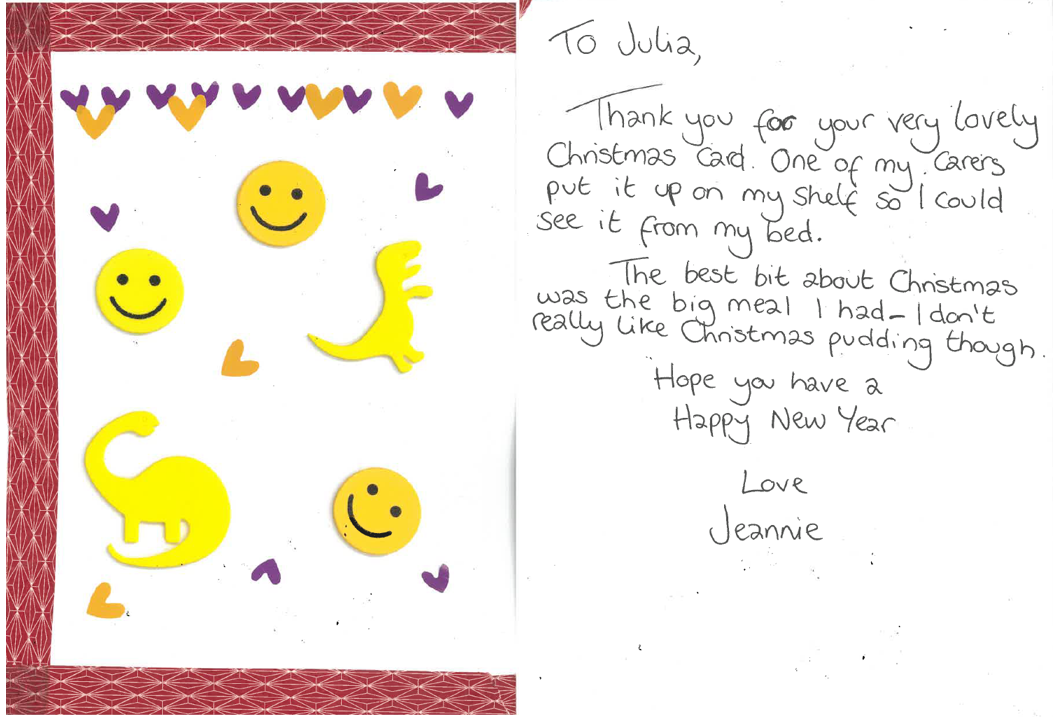 To Julia,
Thank you for your very lovely
Christmas card. One of my carers
put it up on my shelf so I could
see it from my bed.
The best bit about Christmas
was the big meal I had - I don't
really like Christmas pudding though.
Hope you have a
Happy New Year
Love
Jeannie